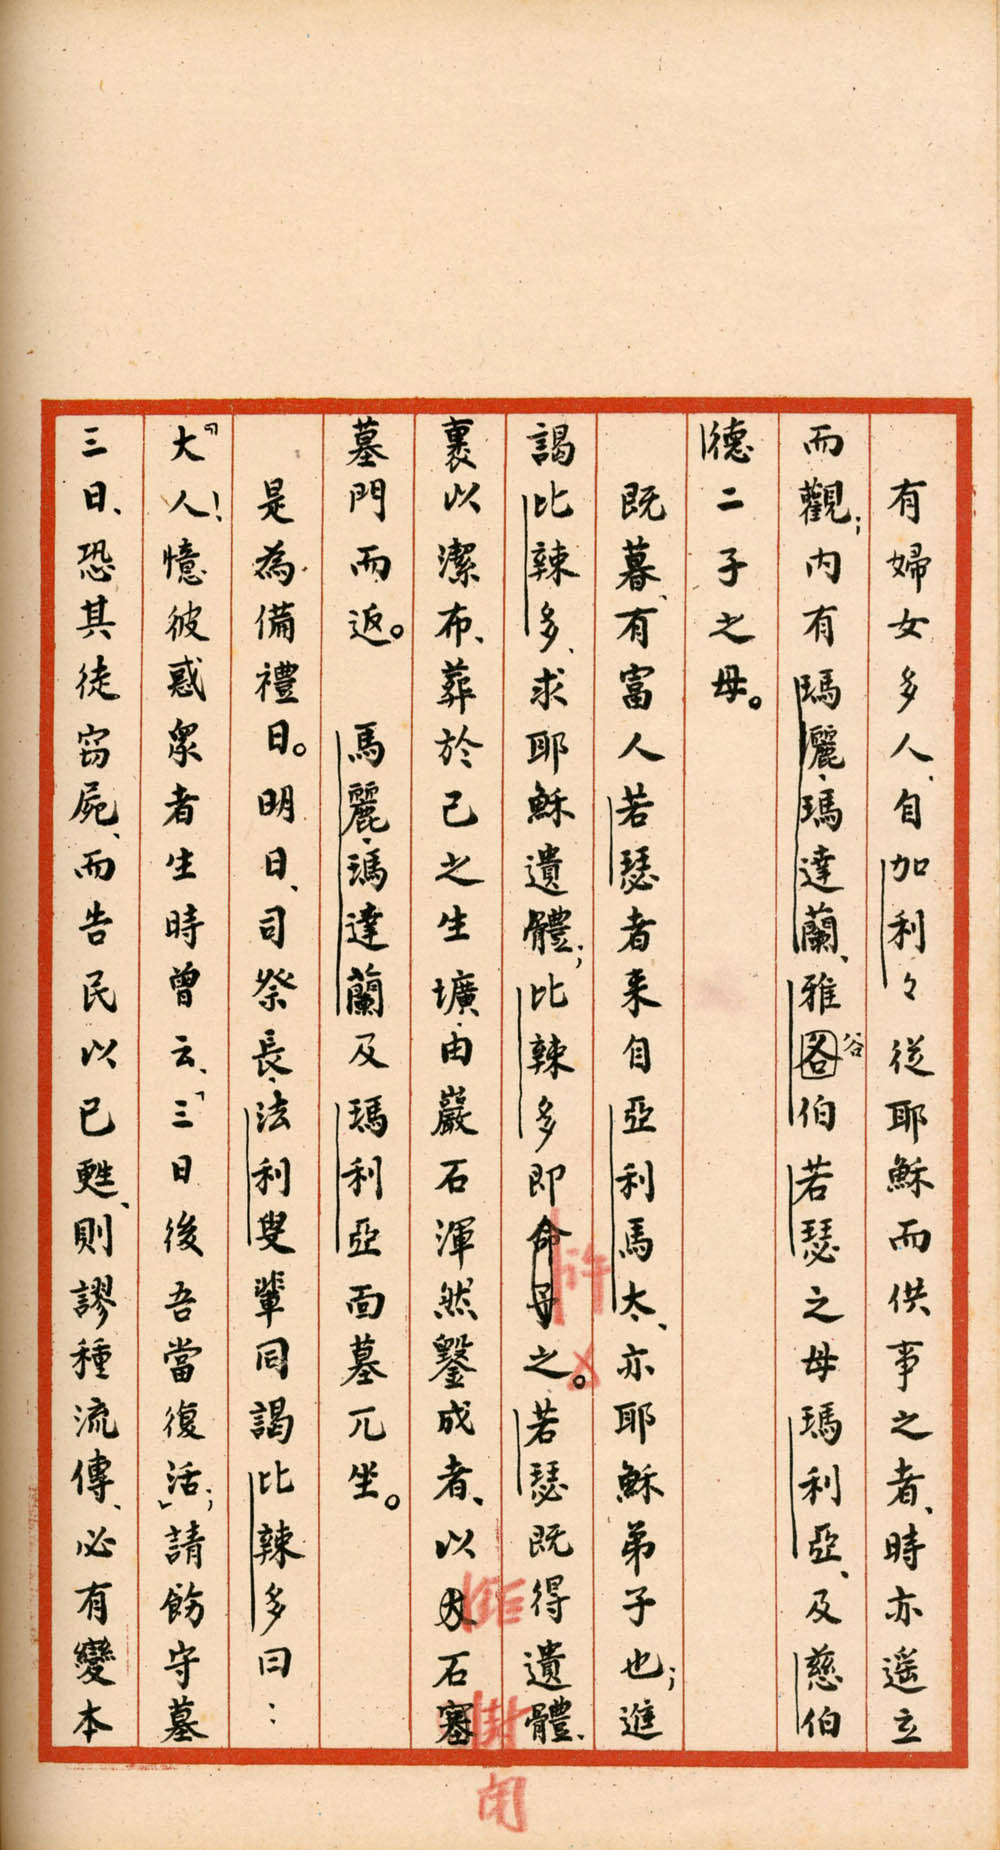 有婦女多人、自加利々從耶穌而供事之者、時亦遥立
而觀；内有瑪儷·瑪達蘭、雅各伯若瑟之母瑪利亞、及慈伯
谷
德二子之母。
既暮、有富人若瑟者来自亞利馬太、亦耶穌弟子也；進
謁比辣多、求耶穌遺體；比辣多即命畀之。若瑟既得遺體、
許
裹以潔布、葬於己之生壙·由巖石渾然鑿成者、以大石塞
鉅
封
閉
墓門而返。馬麗·瑪達蘭及瑪利亞面墓兀坐。
是為備禮日。明日、司祭長·法利叟輩同謁比辣多曰：
「大人！憶彼惑衆者生時曾云、「三日後吾當復活」；請飭守墓
三日、恐其徒窃屍、而告民以已甦、則謬種流傳、必有變本